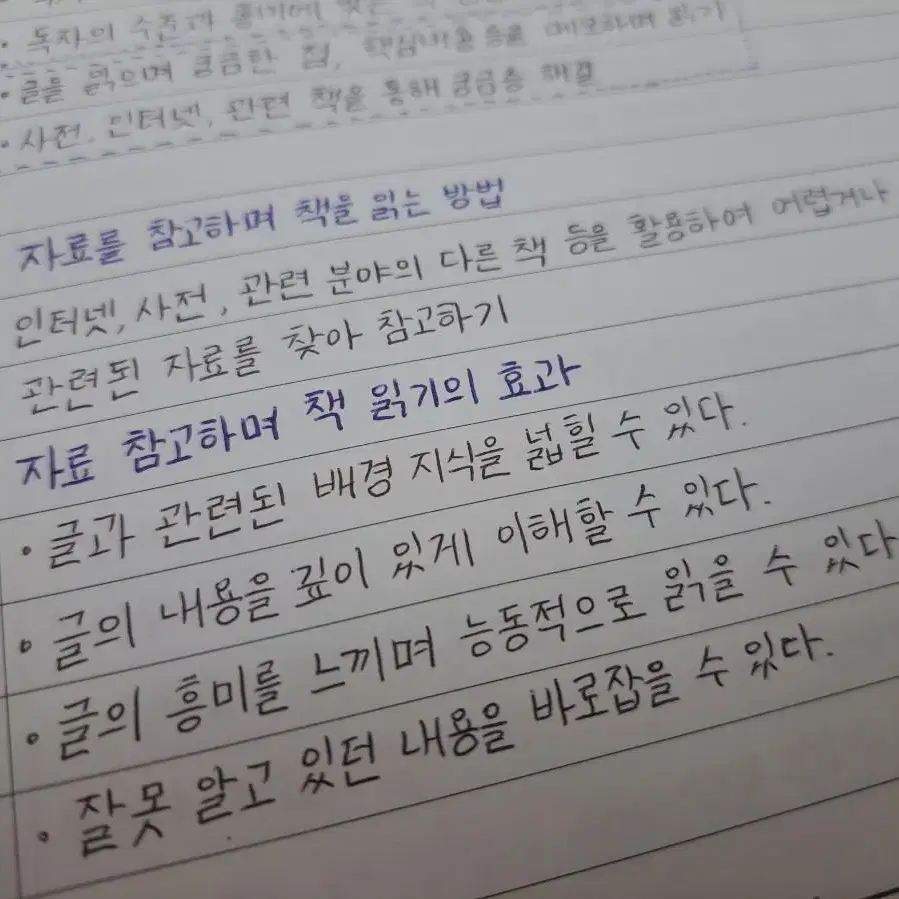 · 독자의 수준과 흥미에 맞는
· 글을 읽으며 궁금한 점, 핵심내용 등을 메모하며 읽기
· 사전, 인터넷, 관련 책을 통해 궁금증 해결
자료를 참고하며 책을 읽는 방법
인터넷, 사전, 관련 분야의 다른 책 등을 활용하여 어렵거나
관련된 자료를 찾아 참고하기
자료 참고하며 책 읽기의 효과
· 글과 관련된 배경 지식을 넓힐 수 있다.
· 글의 내용을 깊이 있게 이해할 수 있다.
· 글의 흥미를 느끼며 능동적으로 읽을 수 있다
· 잘못 알고 있던 내용을 바로잡을 수 있다.